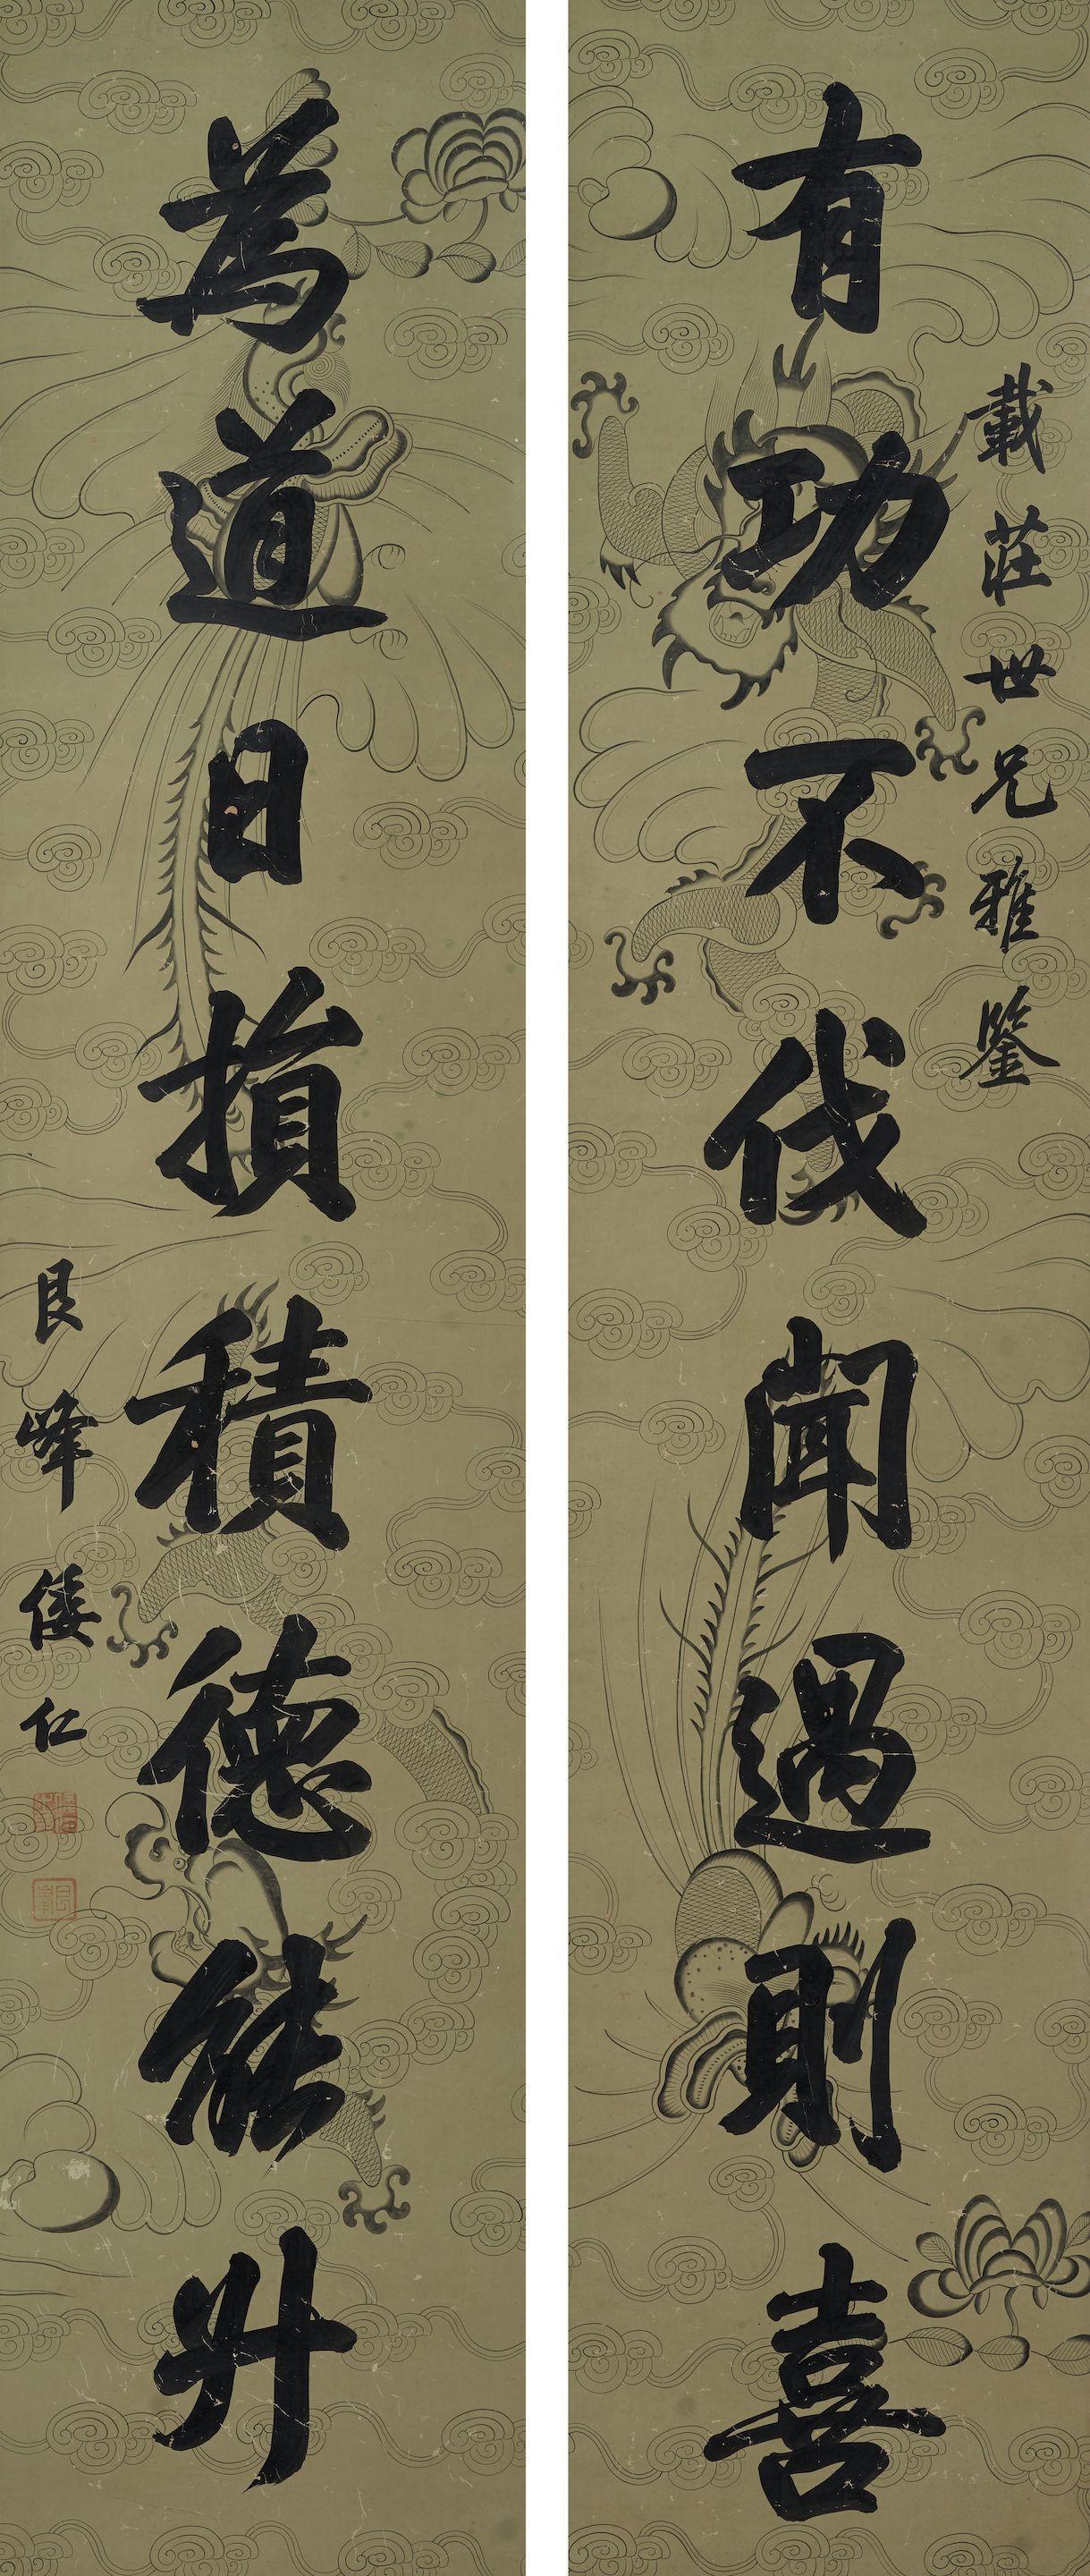 載莊世兄雅鑒
有功不伐聞過則喜
為道日損積德能升
艮峰倭仁